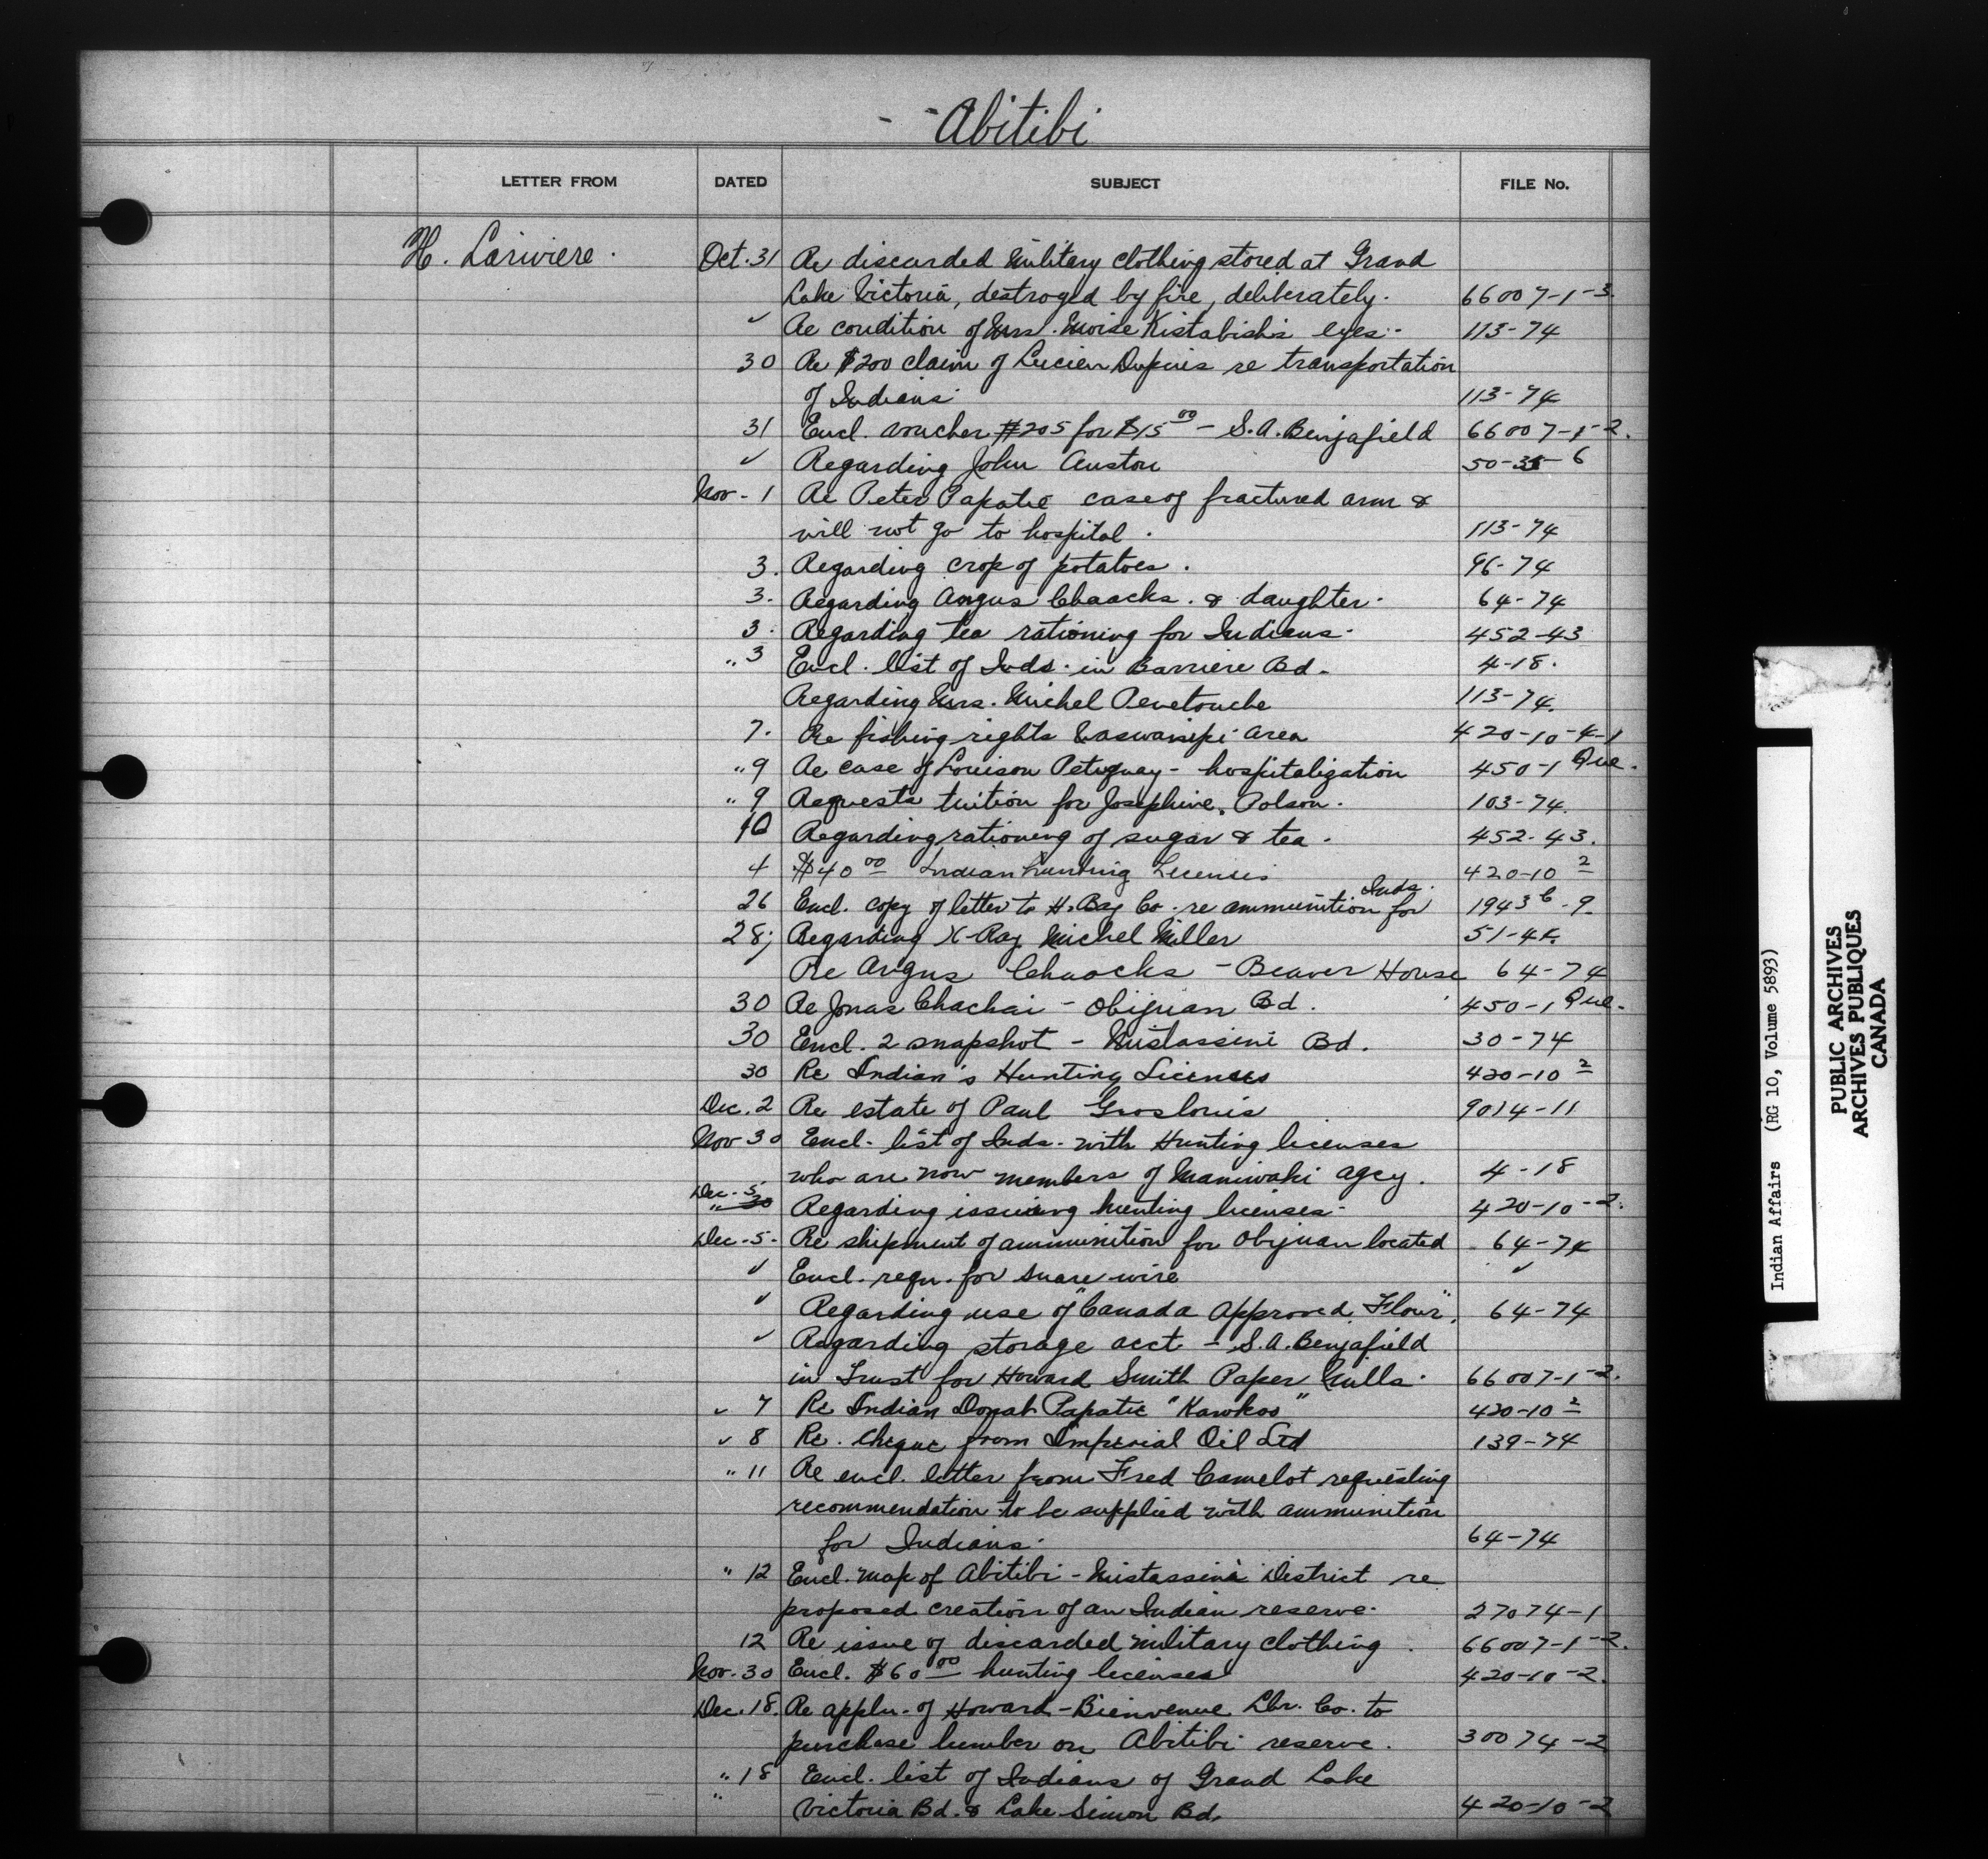 Abitibi
LETTER FROM DATED SUBJECT FILE No.
H. Lariviere. Oct. 31 Re discarded military clothing stored at Grand
Lake Victoria, destroyed by fire, deliberately. 66007-1-3.
✓ Re condition of Mrs. Moise Kistabish's eyes. 113-74
30 Re $200 claim of Lucien Dupuis re transportation
of Indians 113-74
31 Encl. voucher #205 for $15 00 - S.A. Benjafield 66007-1-2.
✓ Regarding John 50-35-6
Nov - 1 Re Peter Papatie case of fractured arm &
will not go to hospital. 113-74
3. Regarding crop of potatoes. 96-74
3. Regarding Angus Chaacks. & daughter. 64-74
3. Regarding tea rationing for Indians. 452-43
" 3 Encl. list of Inds. in Barriere Bd. 4-18.
Regarding Mrs. Michel Penetouche 113-74.
7. Re fishing rights Waswanipi area 420-10-4-1
" 9 Re case of Louison - hospitalization 450-1 Que.
" 9 Requests tuition for Josephine Polson. 103-74.
10 Regarding rationing of sugar & tea. 452-43.
4 $40 00 Indian hunting Licenses 420-10 2
Inds.
26 Encl. copy of letter to H. Bay Co. re ammunition for 1943 -9.
28; Regarding X-Ray Michel Miller 51-4
Re Angus Chaacks - Beaver House 64-74
30 Re Jonas Chachai - Obijuan Bd. 450-1 Que.
30 Encl. 2 snapshot - Mistassini Bd. 30-74
30 Re Indian's Hunting Licenses 420-10 2
Dec. 2 Re estate of Paul Groslouis 9014-11
Nov 30 Encl. list of Inds. with Hunting licenses
who are now members of Maniwaki agcy. 4-18
Dec. 5.
" 30 Regarding issuing hunting licenses. 420-10-2.
Dec. 5. Re shipment of ammunition for Obijuan located 64-74
✓ Encl. reqn. for snare wire ✓
✓ Regarding use of "Canada Approved Flour". 64-74
✓ Regarding storage acct - S.A. Benjafield
in Trust for Howard Smith Paper Mills. 66007-1-2.
✓ 7 Re Indian Donat Papatie "Kawkos" 420-10 2
✓ 8 Re. cheque from Imperial Oil Ltd 139-74
" 11 Re encl. letter from Fred Camelot requesting
recommendation to be supplied with ammunition
for Indians. 64-74
" 12 Encl. map of Abitibi - Mistassini District re
proposed creation of an Indian reserve. 27074-1
12 Re issue of discarded military clothing. 66007-1-2.
Nov. 30 Encl. $60 00 hunting licenses 420-10-2.
Dec. 18. Re appln. of Howard-Bienvenue Lbr. Co. to
purchase lumber on Abitibi reserve. 30074-2
" 18 Encl. list of Indians of Grand Lake
" Victoria Bd. & Lake Simon Bd. 420-10-2
Indian Affairs (RG 10, Volume 5893)
PUBLIC ARCHIVES
ARCHIVES PUBLIQUES
CANADA